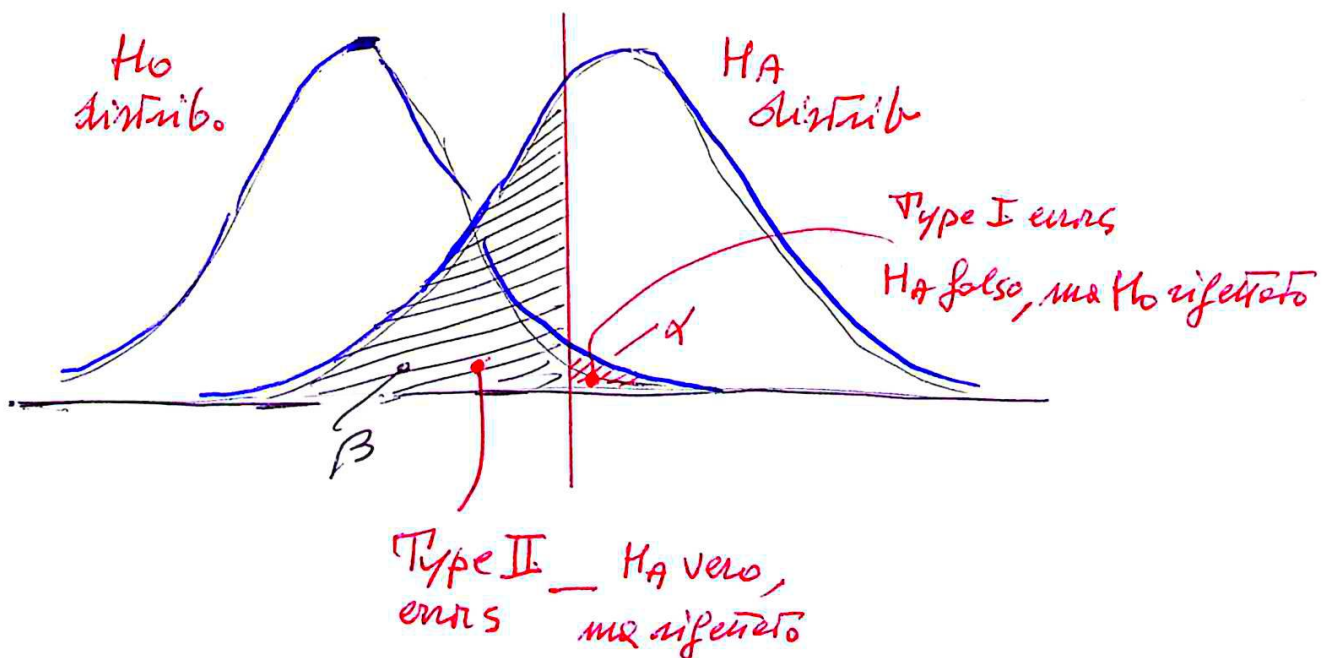 H0
distrib.
HA
distrib
Type I errors
HA falso, ma H0 rigettato
α
β
Type II _ HA vero,
errors ma rigettato